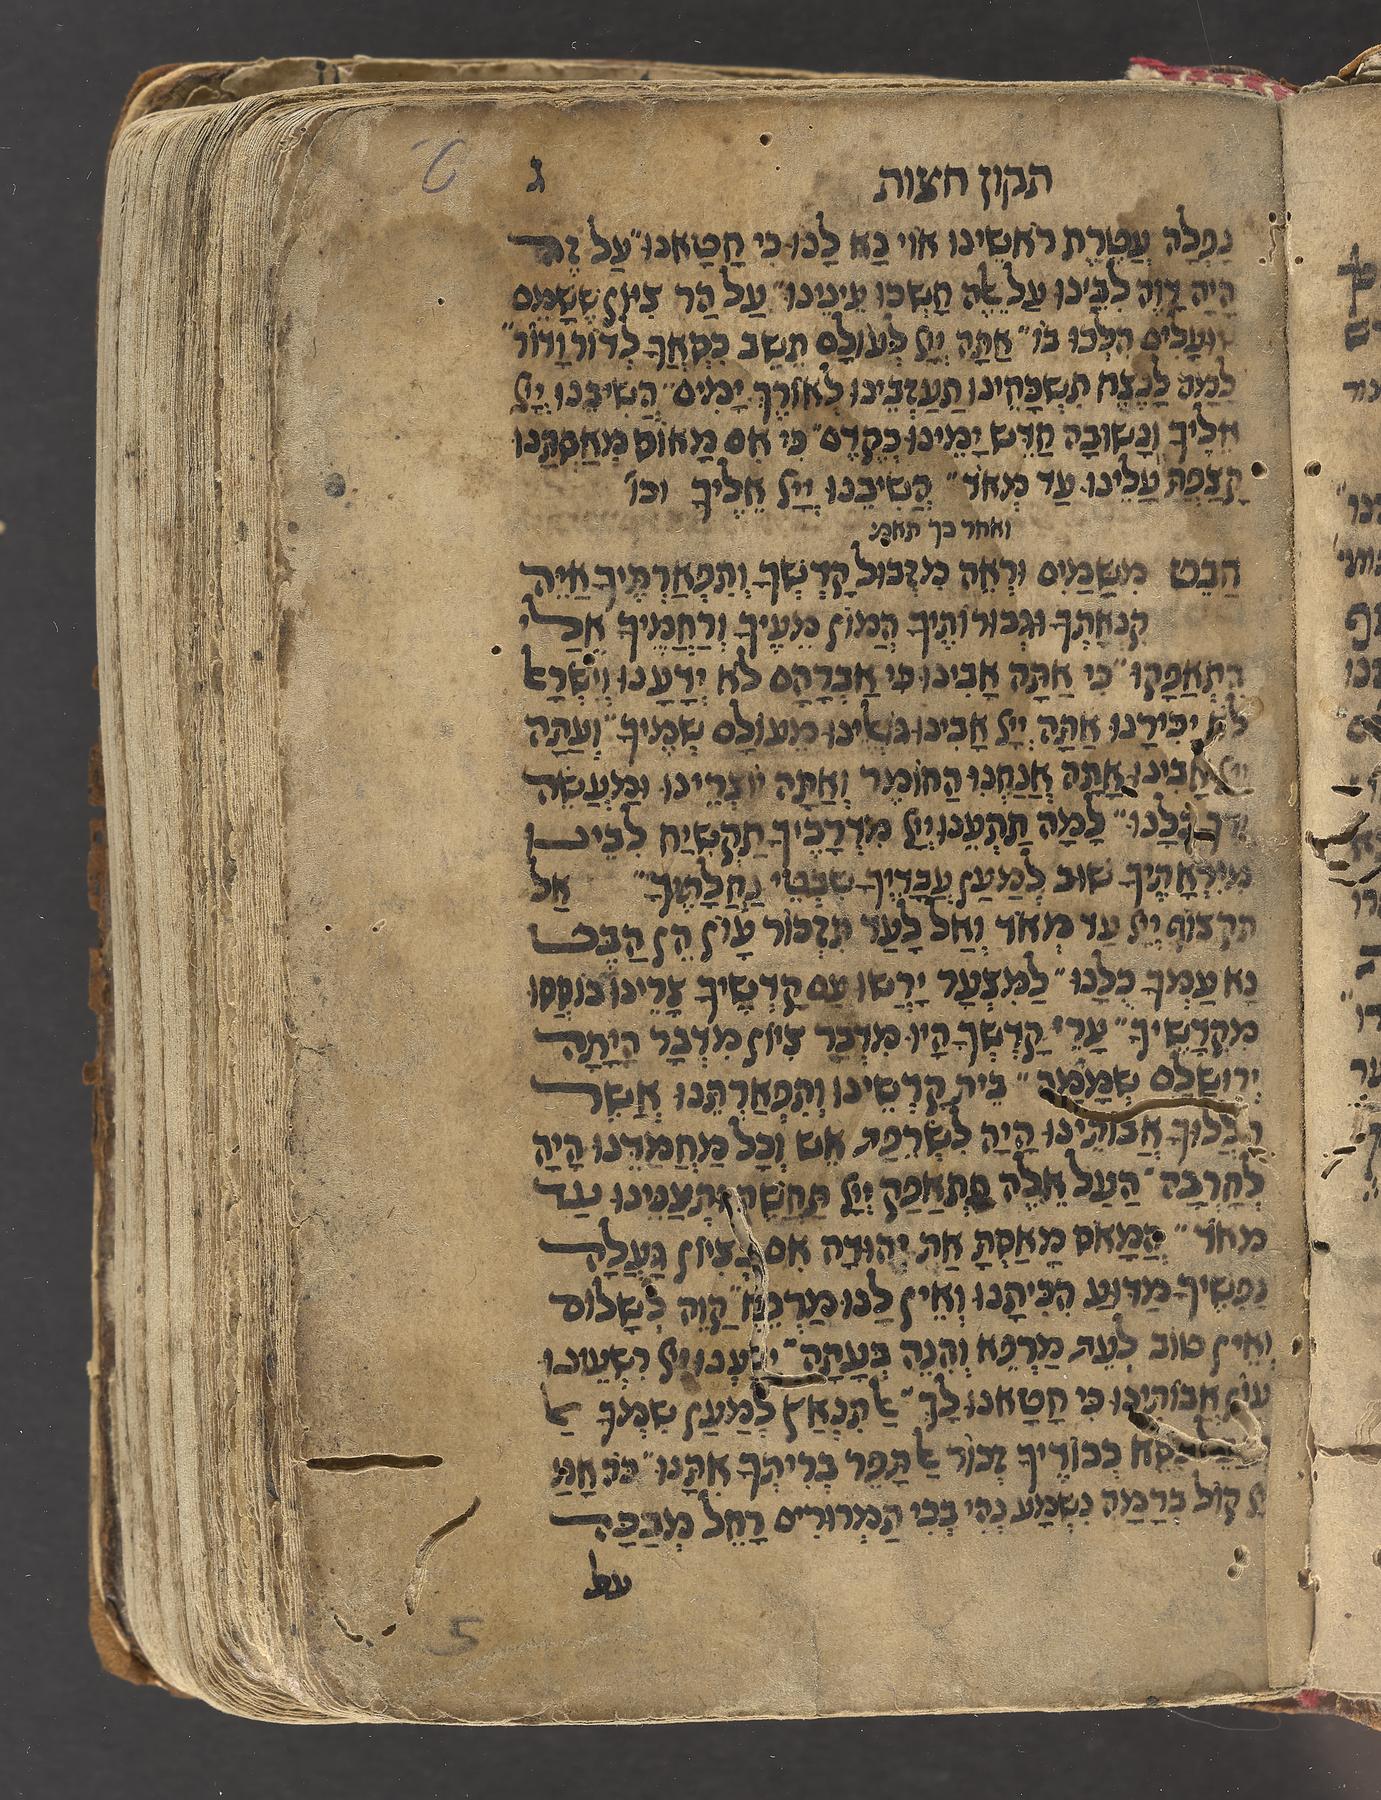 תקון חצות
ג
נָפְלָה עֲטֶרֶת רֹאשֵׁינוּ אוֹי נָא לָנוּ כִּי חָטָאנוּ״ עַל זֶה
הָיָה דָוֶה לִבֵּינוּ עַל אֵלֶּה חָשְׁכוּ עֵינֵינוּ״ עַל הַר צִיּוֹן שֶׁשָּׁמֵם
שׁוּעָלִים הִלְּכוּ בוֹ״ אַתָּה יְיָ לְעוֹלָם תֵּשֵׁב כִּסְאֲךָ לְדוֹר וָדוֹר״
לָמָּה לָנֶצַח תִּשְׁכָּחֵינוּ תַּעַזְבֵינוּ לְאוֹרֶךְ יָמִים״ הֲשִׁיבֵנוּ יְיָ
אֵלֶיךָ וְנָשׁוּבָה חַדֵּשׁ יָמֵינוּ כְּקֶדֶם״ כִּי אִם מָאוֹס מְאַסְתָּנוּ
קָצַפְתָּ עָלֵינוּ עַד מְאֹד״ הֲשִׁיבֵנוּ יְיָ אֵלֶיךָ וכו׳
ואחר כך תאמ׳
הַבֵּט מִשָּׁמַיִם וּרְאֵה מִזְּבוּל קָדְשְׁךָ וְתִפְאַרְתֶּיךָ אַיֵּה
קִנְאָתְךָ וּגְבוּרוֹתֶיךָ הֲמוֹן מֵעֶיךָ וְרַחֲמֶיךָ אֵלַי
הִתְאַפָּקוּ״ כִּי אַתָּה אָבִינוּ כִּי אַבְרָהָם לֹא יְדָעָנוּ וְיִשְׂרָאֵל
לֹא יַכִּירָנוּ אַתָּה יְיָ אָבִינוּ גֹּאֲלֵינוּ מֵעוֹלָם שְׁמֶיךָ״ וְעַתָּה
יְיָ אָבִינוּ אָתָּה אֲנַחְנוּ הַחוֹמֶר וְאַתָּה יוֹצְרֵינוּ וּמַעֲשֵׂה
יָדְךָ כֻּלָּנוּ״ לָמָּה תַתְעֵנוּ יְיָ מִדְּרָכֶיךָ תַּקְשִׁיחַ לִבֵּינוּ
מִיִּרְאָתֶיךָ שׁוּב לְמַעַן עֲבָדֶיךָ שִׁבְטֵי נַחֲלָתֶךָ״ אַל
תִּקְצוֹף יְיָ עַד מְאֹד וְאַל לָעַד תִּזְכּוֹר עָוֹן הֵן הַבֶּט
נָא עַמְּךָ כֻלָּנוּ״ לַמִּצְעָר יָרְשׁוּ עַם קָדְשֶׁיךָ צָרֵינוּ בּוֹסְסוּ
מִקְדָּשֶׁיךָ״ עָרֵי קָדְשְׁךָ הָיוּ מִדְבָּר צִיּוֹן מִדְבָּר הָיָתָה
יְרוּשָׁלִַם שְׁמָמָה״ בֵּית קָדְשֵׁינוּ וְתִפְאַרְתֵּנוּ אֲשֶׁר
הִלְלוּךָ אֲבוֹתֵינוּ הָיָה לִשְׂרֵפַת אֵשׁ וְכָל מַחֲמַדֵּנוּ הָיָה
לְחָרְבָּה״ הַעַל אֵלֶּה תִתְאַפַּק יְיָ תֶּחֱשֶׁה וּתְעַנֵּינוּ עַד
מְאֹד״ הֲמָאֹס מָאַסְתָּ אֶת יְהוּדָה אִם בְּצִיּוֹן גָּעֲלָה
נַפְשֶׁיךָ מַדּוּעַ הִכִּיתָנוּ וְאֵין לָנוּ מַרְפֵּא קַוֵּה לְשָׁלוֹם
וְאֵין טוֹב לְעֵת מַרְפֵּא וְהִנֵּה בְּעָתָה״ יָדַעְנוּ יְיָ רִשְׁעֵינוּ
עֲוֹן אֲבוֹתֵינוּ כִּי חָטָאנוּ לָךְ״ אַל תִּנְאַץ לְמַעַן שִׁמְךָ אַל
כִּסֵּא כְבוֹדֶיךָ זְכוֹר אַל תָּפֵר בְּרִיתְךָ אִתָּנוּ״ כֹּה אָמַר
יְיָ קוֹל בְּרָמָה נִשְׁמָע נְהִי בְּכִי תַמְרוּרִים רָחֵל מְבַכָּה
על
5